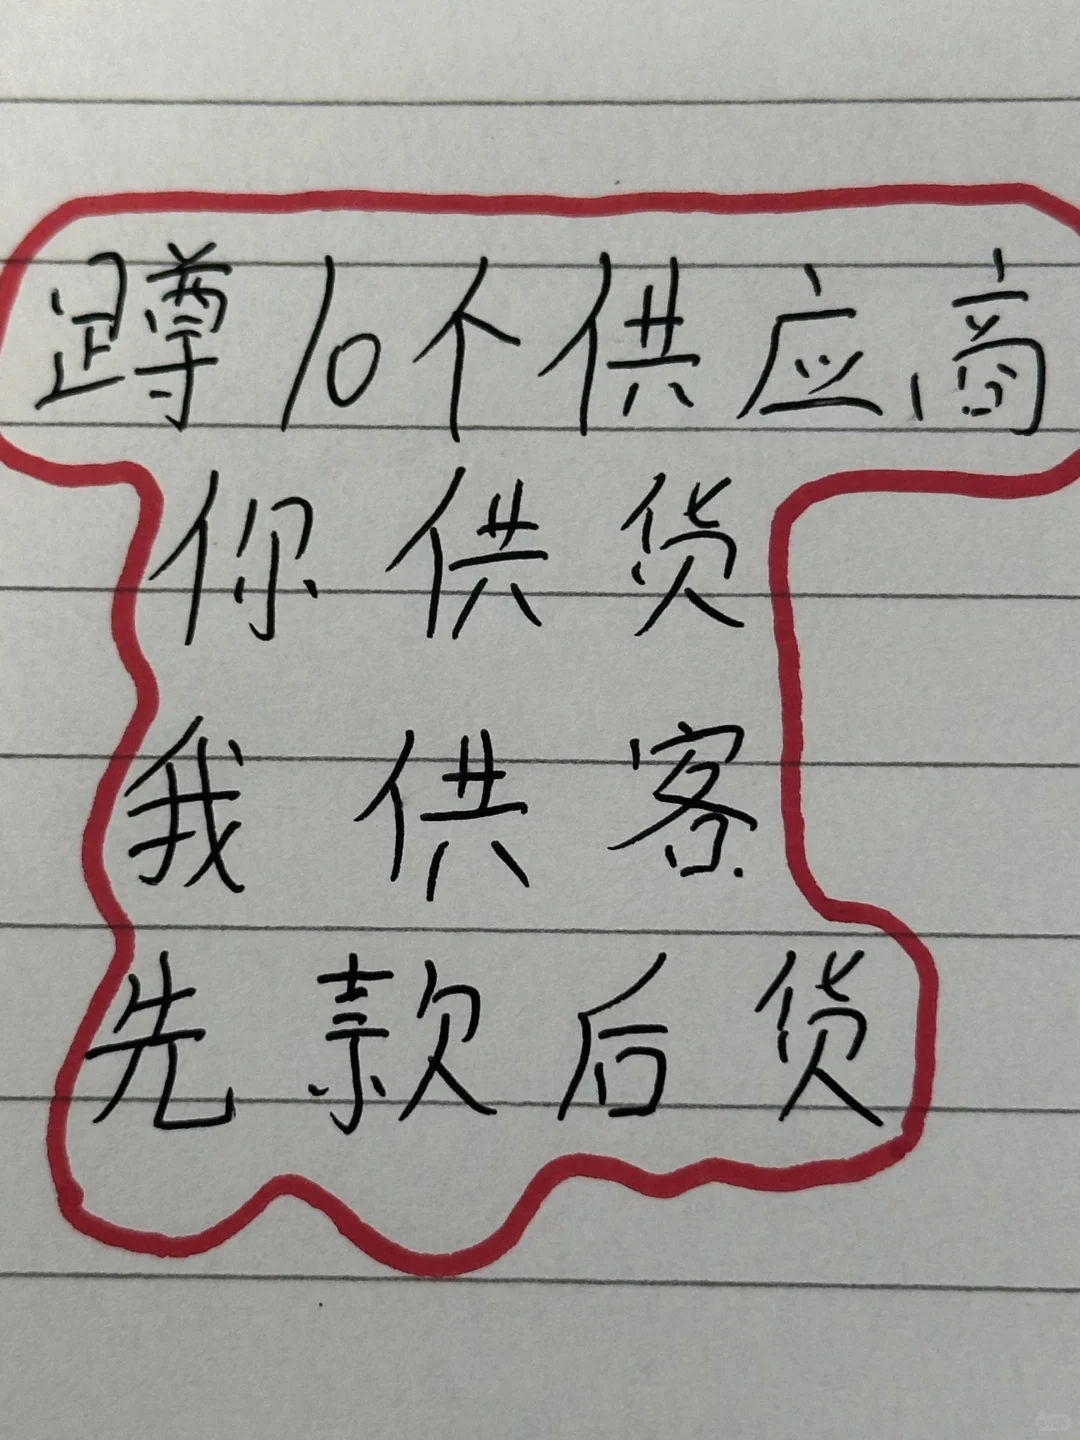 蹲10个供应商
你供货
我供客
先款后货